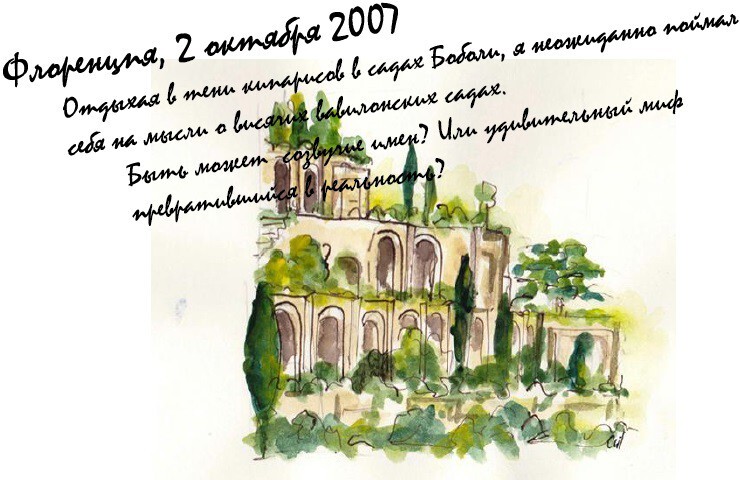 Флоренция, 2 октября 2007
Отдыхая в тени кипарисов в садах Боболи, я неожиданно поймал
себя на мысли о висячих вавилонских садах.
Быть может созвучие имен? Или удивительный миф
превратившийся в реальность?